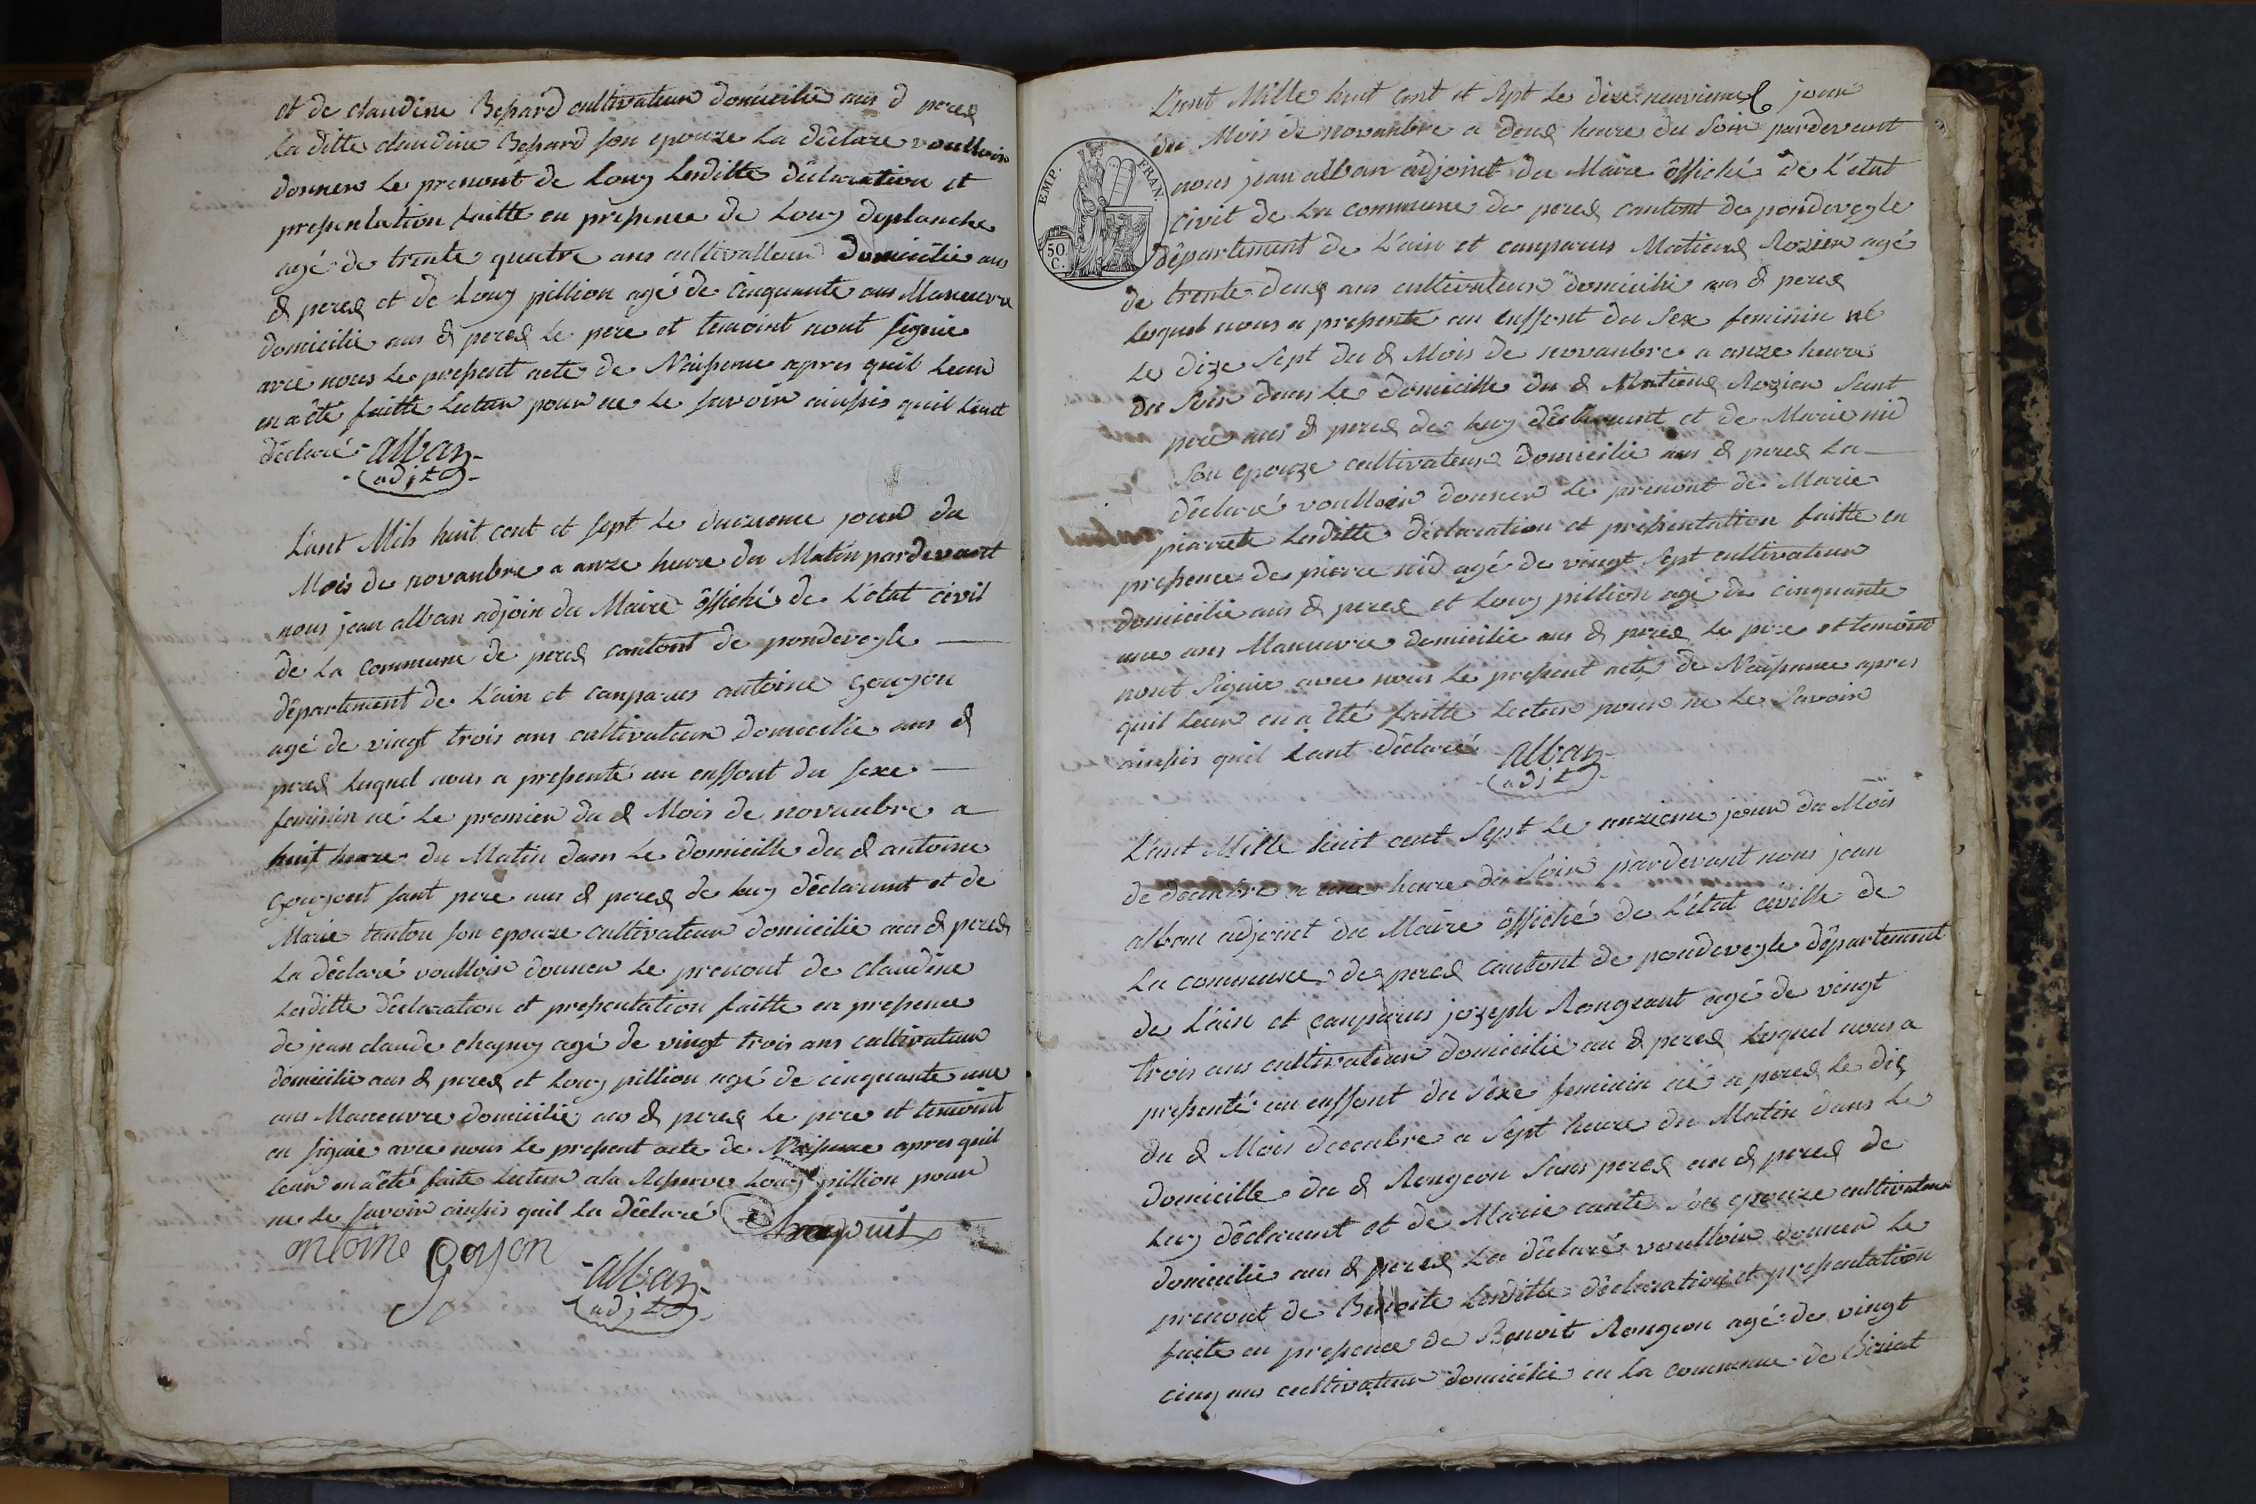 et de claudine Bessard cultivateur domicilié aus d peres
La ditte claudine Bessard son epouze La déclare voulloir
donner Le prenont de Louy Lesditte déclaration et
presentation faitte en presence de Louy deplanche
agé de trente quatre ans cultivatteur domicilié aus
d peres et de Louy pillion agé de cinquante ans Maneuvre
domicilié aus d peres Le pere et temoint nont signie
avec nous Le present acte de Naissence apres quil Leur
en a été faitte Lectur pour ne Le savoir ainssis quil Lont
déclaré alban
adjt
L'ant Mils huit cent et sept Le jour du
Mois de novanbre a onze heure du Matin pardevant
nous jean alban adjoin du Maire offiché de L'etat civil
de La commune de peres cantont de pondeveyle
département de L'ain et conparus antoine goyon
agé de vingt trois ans cultivateur domicilié aus d
peres Lequel nous a presenté un enffont du sexe
feminin né Le premier du d Mois de novanbre a
huit heure du Matin dans Le domicille du d antoine
goyont sont pere aus d peres de Luy déclarant et de
Marie tonton son epouze cultivateur domicilié aus d peres
La déclaré voulloir donner Le prenont de claudine
Lesditte déclaration et presentation faitte en presence
de jean claude chapuy agé de vingt trois ans cultivateur
domicilié aus d peres et Louy pillion agé de cinquante une
ans Maneuvre domicilié aus d peres Le pere et temoint
on signie avec nous Le present acte de Naissence apres quil
Leur en a été faite Lectur a la Reserve Louy pillion pour
ne Le savoir ainssis quil La déclaré chapuit
antoine goyon
alban
adjt
L'ant Mille huit cent et sept Le dixe neuvieme jour
du Mois de novanbre a deus heure du soir pardevant
EMP. FRAN.
50 C.
nous jean alban adjoint du Maire offiché de L'etat
civit de La commune de peres cantont de pondeveyle
département de L'ain et conparus Matieus Rozier agé
de trente deus ans cultivateur domicilié aus d peres
Lesquel nous a presente un enffont du sex feminin né
Le dize sept du d Mois de novanbre a onze heure
du soir dans Le domicille du d Matieus Rozier sont
pere aus d peres de Luy déclarant et de Marie nid
son epouze cultivateur domicilié aus d peres La
déclaré voulloir donner Le prenont de Marie
piarrete Lesditte déclaration et presentation faitte en
presence de pierre nid agé de vingt sept cultivateur
domicilié aus d peres et Louy pillion agé de cinquante
une ans Maneuvre domicilié aus d peres Le pere et temoint
nont signie avec nous Le present acte de Naissence apres
quil Leur en a été faitte Lectur pour ne Le savoir
ainssis quil Lont déclaré alban
adjt
L'ant Mille huit cent sept Le onzieme jour du Mois
de decenbre a une heure du soir pardevant nous jean
alban adjoint du Maire offiché de L'état civille de
La commune de peres cantont de pondeveyle département
de L'ain et conparus jozeph Rongeant agé de vingt
trois ans cultivateur domicilié au d peres Lequel nous a
presenté un enffont du sexe feminin né a peres Le dis
du d Mois decenbre a sept heure du Matin dans Le
domicille du d Rongeon sons peres au d peres de
Luy déclarant et de Marie son epouze cultivateur
domicilié aus d peres La déclaré voulloir donner Le
prenont de Benoite Lesditte déclaration et presentation
faite en presence de Benoit Rongeon agé de vingt
cinq ans cultivateur domicilié en La commune de Biziat